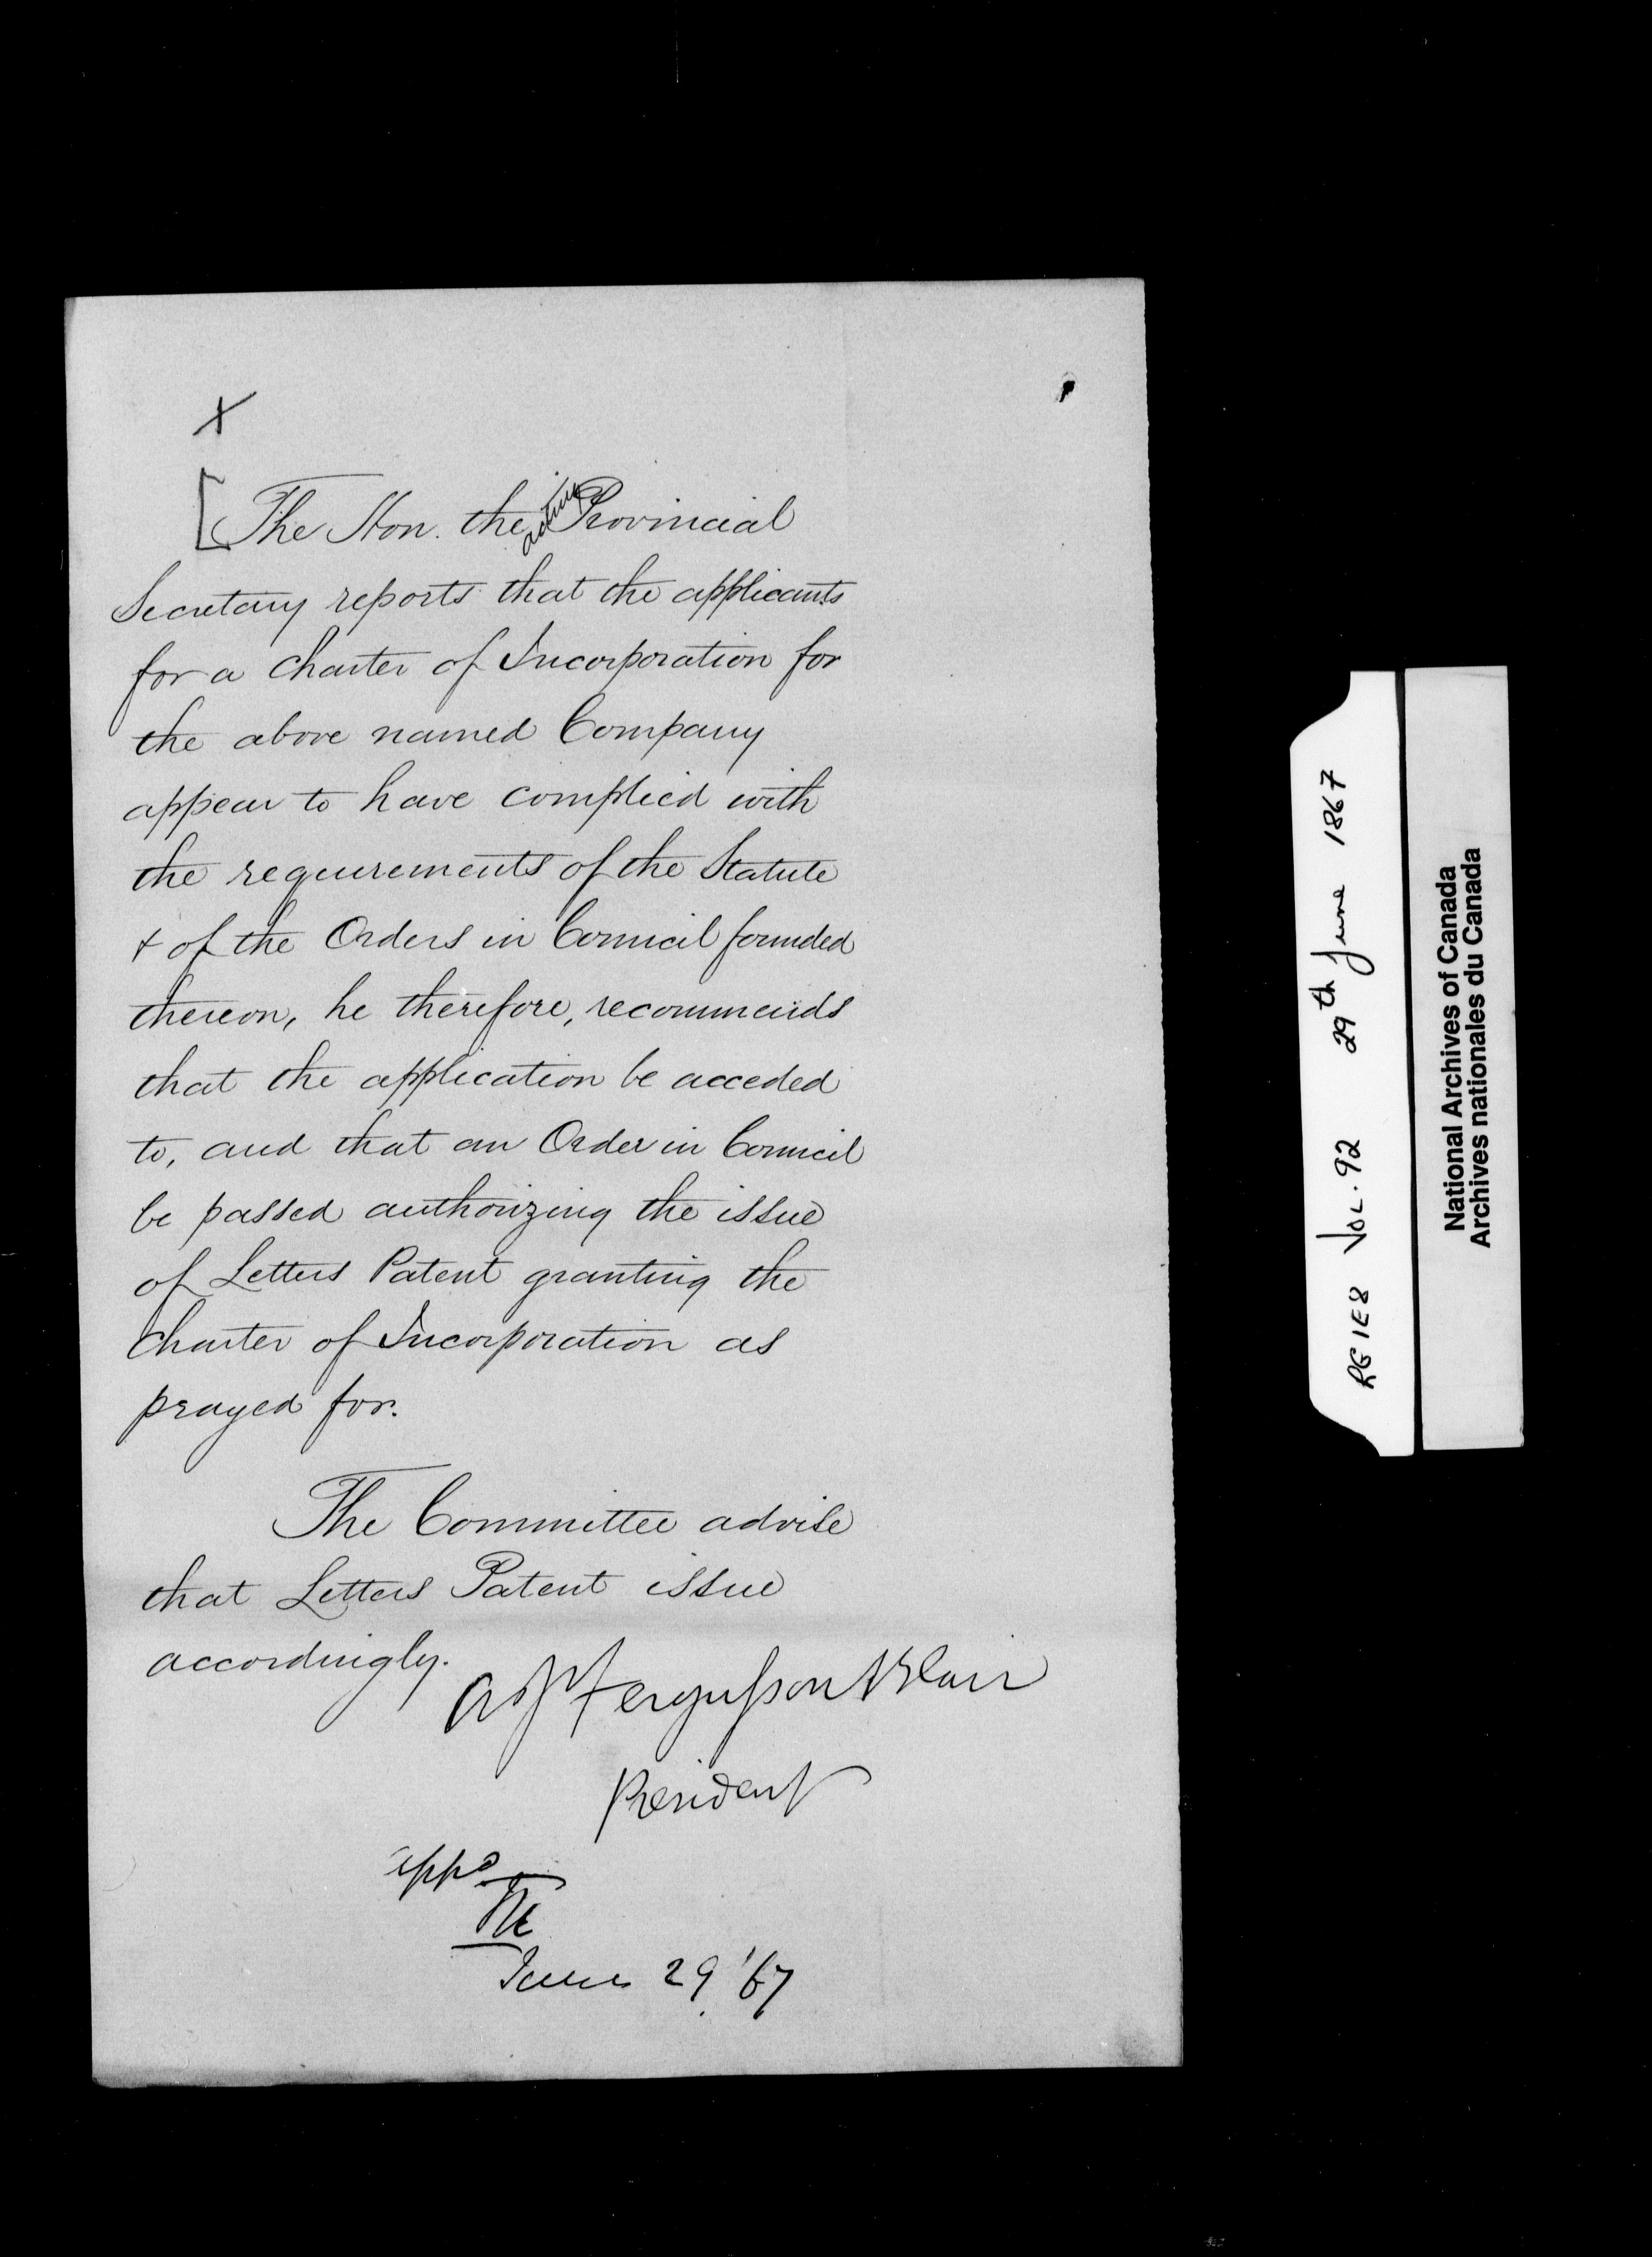 X
[The Hon. the acting Provincial
Secretary reports that the applicants
for a Charter of Incorporation for
the above named Company
appear to have complied with
the requirements of the Statute
& of the Orders in Council founded
thereon, he therefore, recommends
that the application be acceded
to, and that an Order in Council
be passed authorizing the issue
of Letters Patent granting the
Charter of Incorporation as
prayed for.
The Committee advise
that Letters Patent issue
accordingly.
A J Fergusson Blair
President
appd
M
June 29 '67
RG 1 E8 VOL. 92 29th June 1867
National Archives of Canada
Archives nationales du Canada